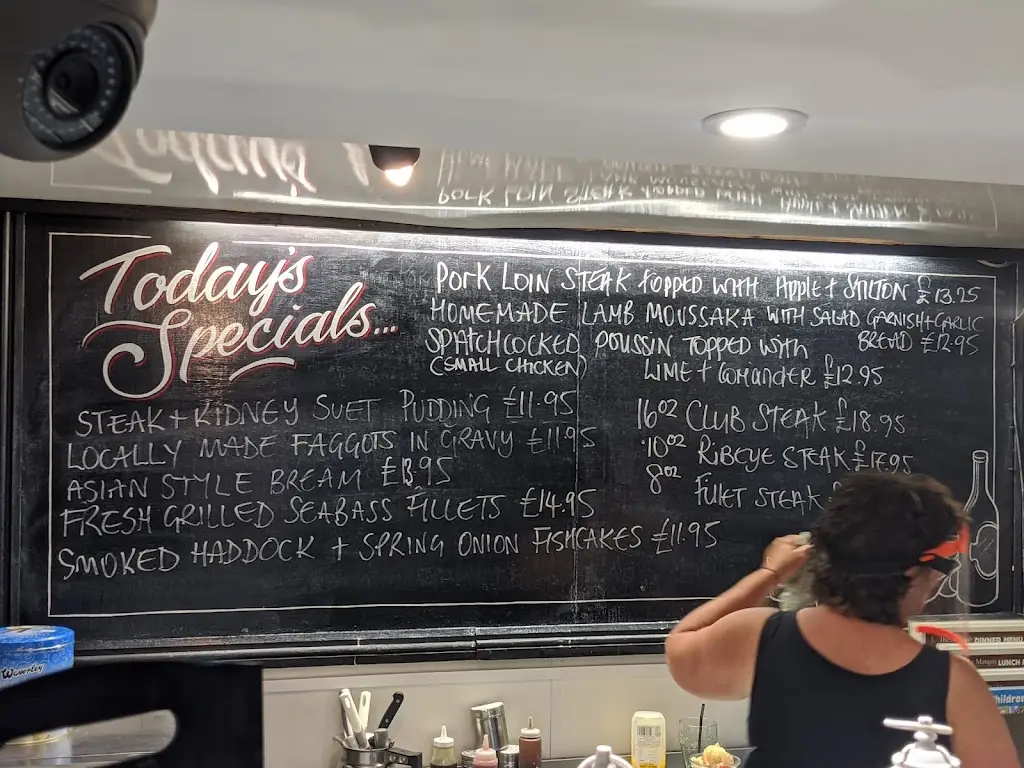 Today's
Specials...
STEAK + KIDNEY SUET PUDDING £11.95
LOCALLY MADE FAGGOTS IN GRAVY £11.95
ASIAN STYLE BREAM £13.95
FRESH GRILLED SEABASS FILLETS £14.95
SMOKED HADDOCK + SPRING ONION FISHCAKES £11.95
PORK LOIN STEAK TOPPED WITH APPLE + STILTON £13.25
HOMEMADE LAMB MOUSSAKA WITH SALAD GARNISH + GARLIC
BREAD £12.95
SPATCHCOCKED POUSSIN TOPPED WITH
(SMALL CHICKEN) LIME + CORIANDER £12.95
16oz CLUB STEAK £18.95
10oz RIBEYE STEAK £17.95
8oz FILLET STEAK £
Waverley
DINNER MENU
LUNCH